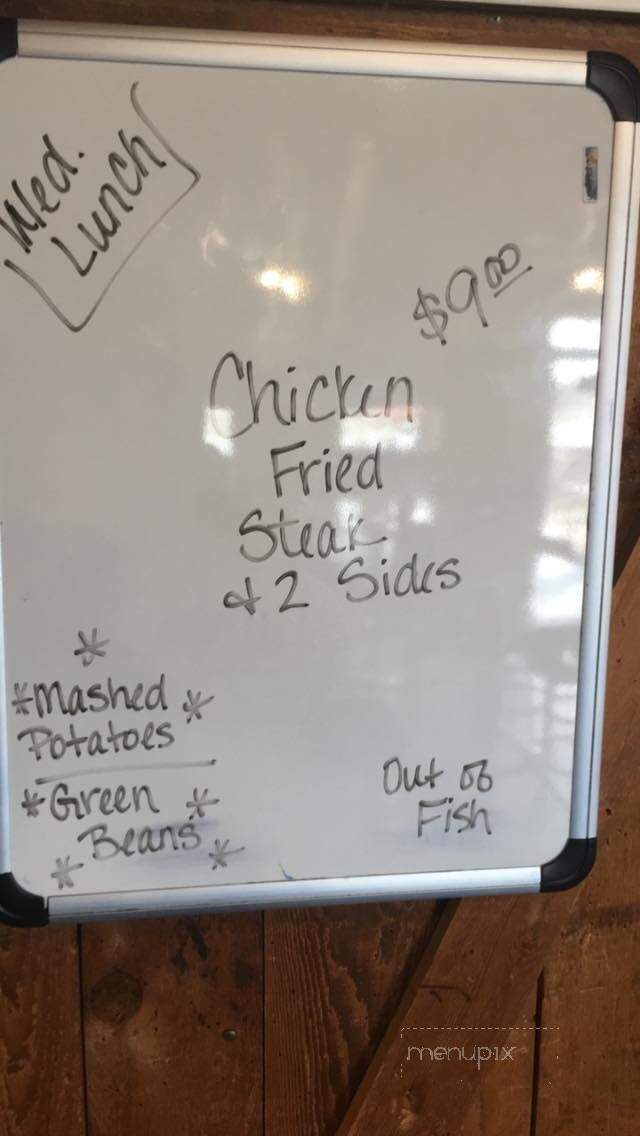 Wed.
Lunch
$9.00
Chicken
Fried
Steak
& 2 Sides
*
*Mashed *
Potatoes
*Green *
Beans
* *
Out of
Fish
menupix